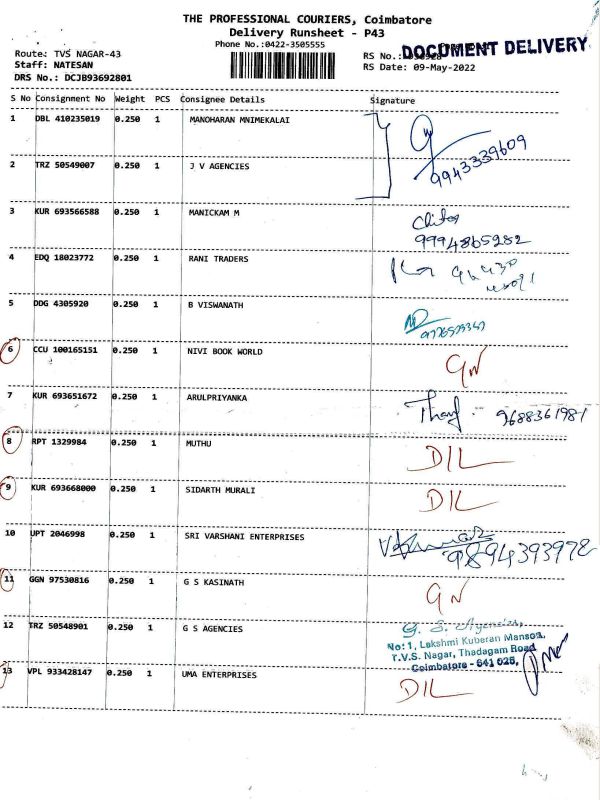 THE PROFESSIONAL COURIERS, Coimbatore
Delivery Runsheet - P43
Phone No.:0422-3505555
DOCUMENT DELIVERY
Route: TVS NAGAR-43
Staff: NATESAN
DRS No.: DCJB93692801
RS No.:
RS Date: 09-May-2022
S No Consignment No Weight PCS Consignee Details Signature
1 DBL 410235019 0.250 1 MANOHARAN MNIMEKALAI
9943339609
2 TRZ 50549007 0.250 1 J V AGENCIES
3 KUR 693566588 0.250 1 MANICKAM M
9994865282
4 EDQ 18023772 0.250 1 RANI TRADERS
5 DDG 4305920 0.250 1 B VISWANATH
6 CCU 100165151 0.250 1 NIVI BOOK WORLD
7 KUR 693651672 0.250 1 ARULPRIYANKA 9688361981
8 RPT 1329984 0.250 1 MUTHU DIL
9 KUR 693668000 0.250 1 SIDARTH MURALI DIL
10 UPT 2046998 0.250 1 SRI VARSHANI ENTERPRISES 9894393972
11 GGN 97530816 0.250 1 G S KASINATH
12 TRZ 50548901 0.250 1 G S AGENCIES G. S. Agencies,
No: 1, Lakshmi Kuberan Mansion,
T.V.S. Nagar, Thadagam Road
Coimbatore - 641 025,
13 VPL 933428147 0.250 1 UMA ENTERPRISES DIL